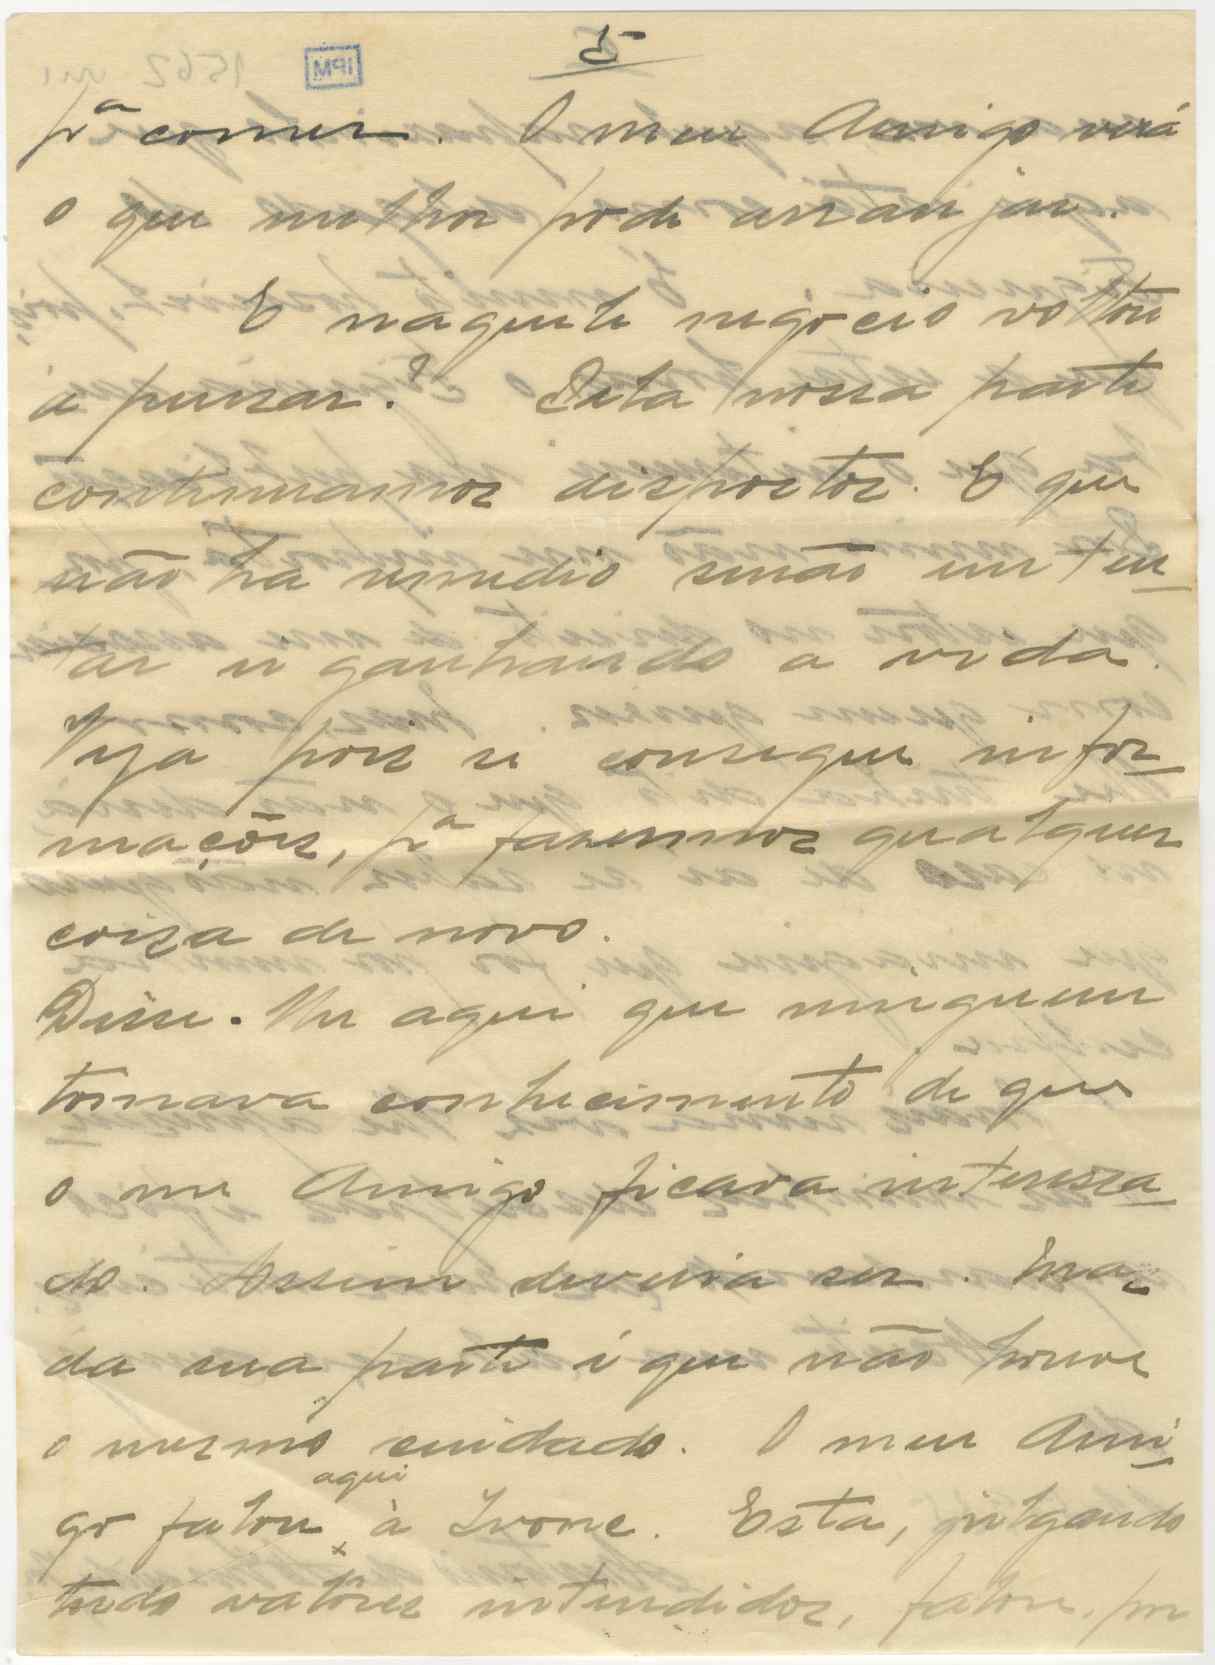 5
pª comer. O meu Amigo verá
o que melhor pode arranjar.
E naquele negócio voltou
a pensar? Desta nossa parte
continuamos dispostos. E que
não ha remedio senão ir ten-
tar ir ganhando a vida.
Veja pois se consegue infor-
mações, pª fazermos qualquer
coisa de novo.
Disse-lhe aqui que ninguem
tomava conhecimento de que
o meu Amigo ficava interessa-
do. Assim deveria ser. Mas
da sua parte é que não houve
o mesmo cuidado. O meu Ami-
aqui
go falou à Ivone. Esta, julgando
tudo entendidos, falou, por